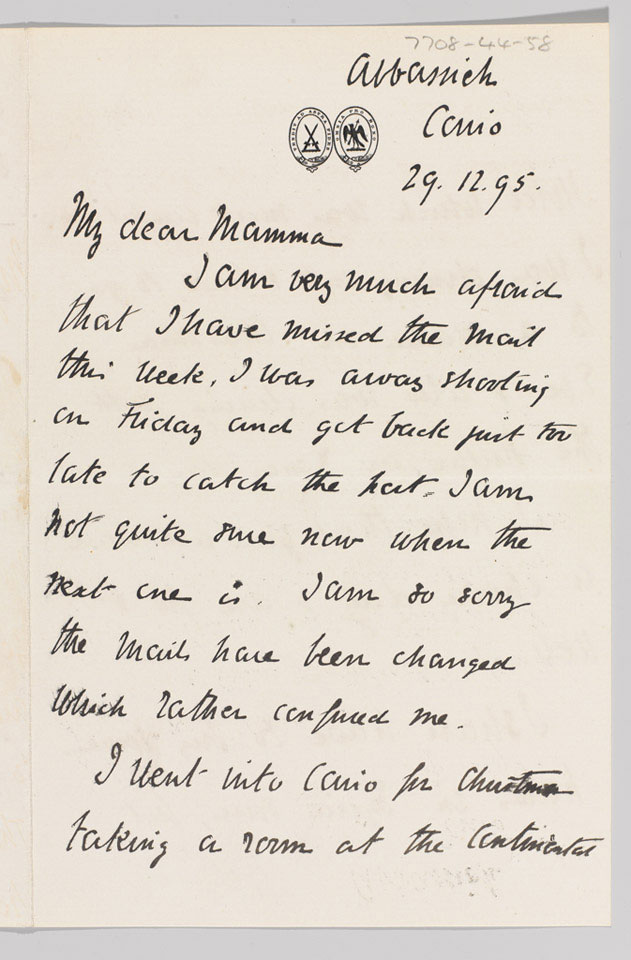 7708-44-58
Abbassieh
Cairo
29.12.95.
My dear Mamma
I am very much afraid
that I have missed the mail
this week. I was away shooting
on Friday and got back just too
late to catch the post. I am
not quite sure now when the
next one is. I am so sorry
the mails have been changed
which rather confused me.
I went into Cairo for Christmas
taking a room at the Continental